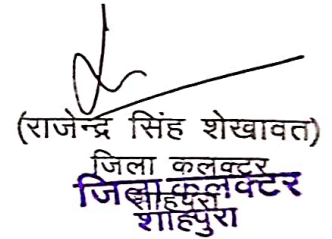 (राजेन्द्र सिंह शेखावत)
जिला कलक्टर
जिला कलक्टर
शाहपुरा
शाहपुरा